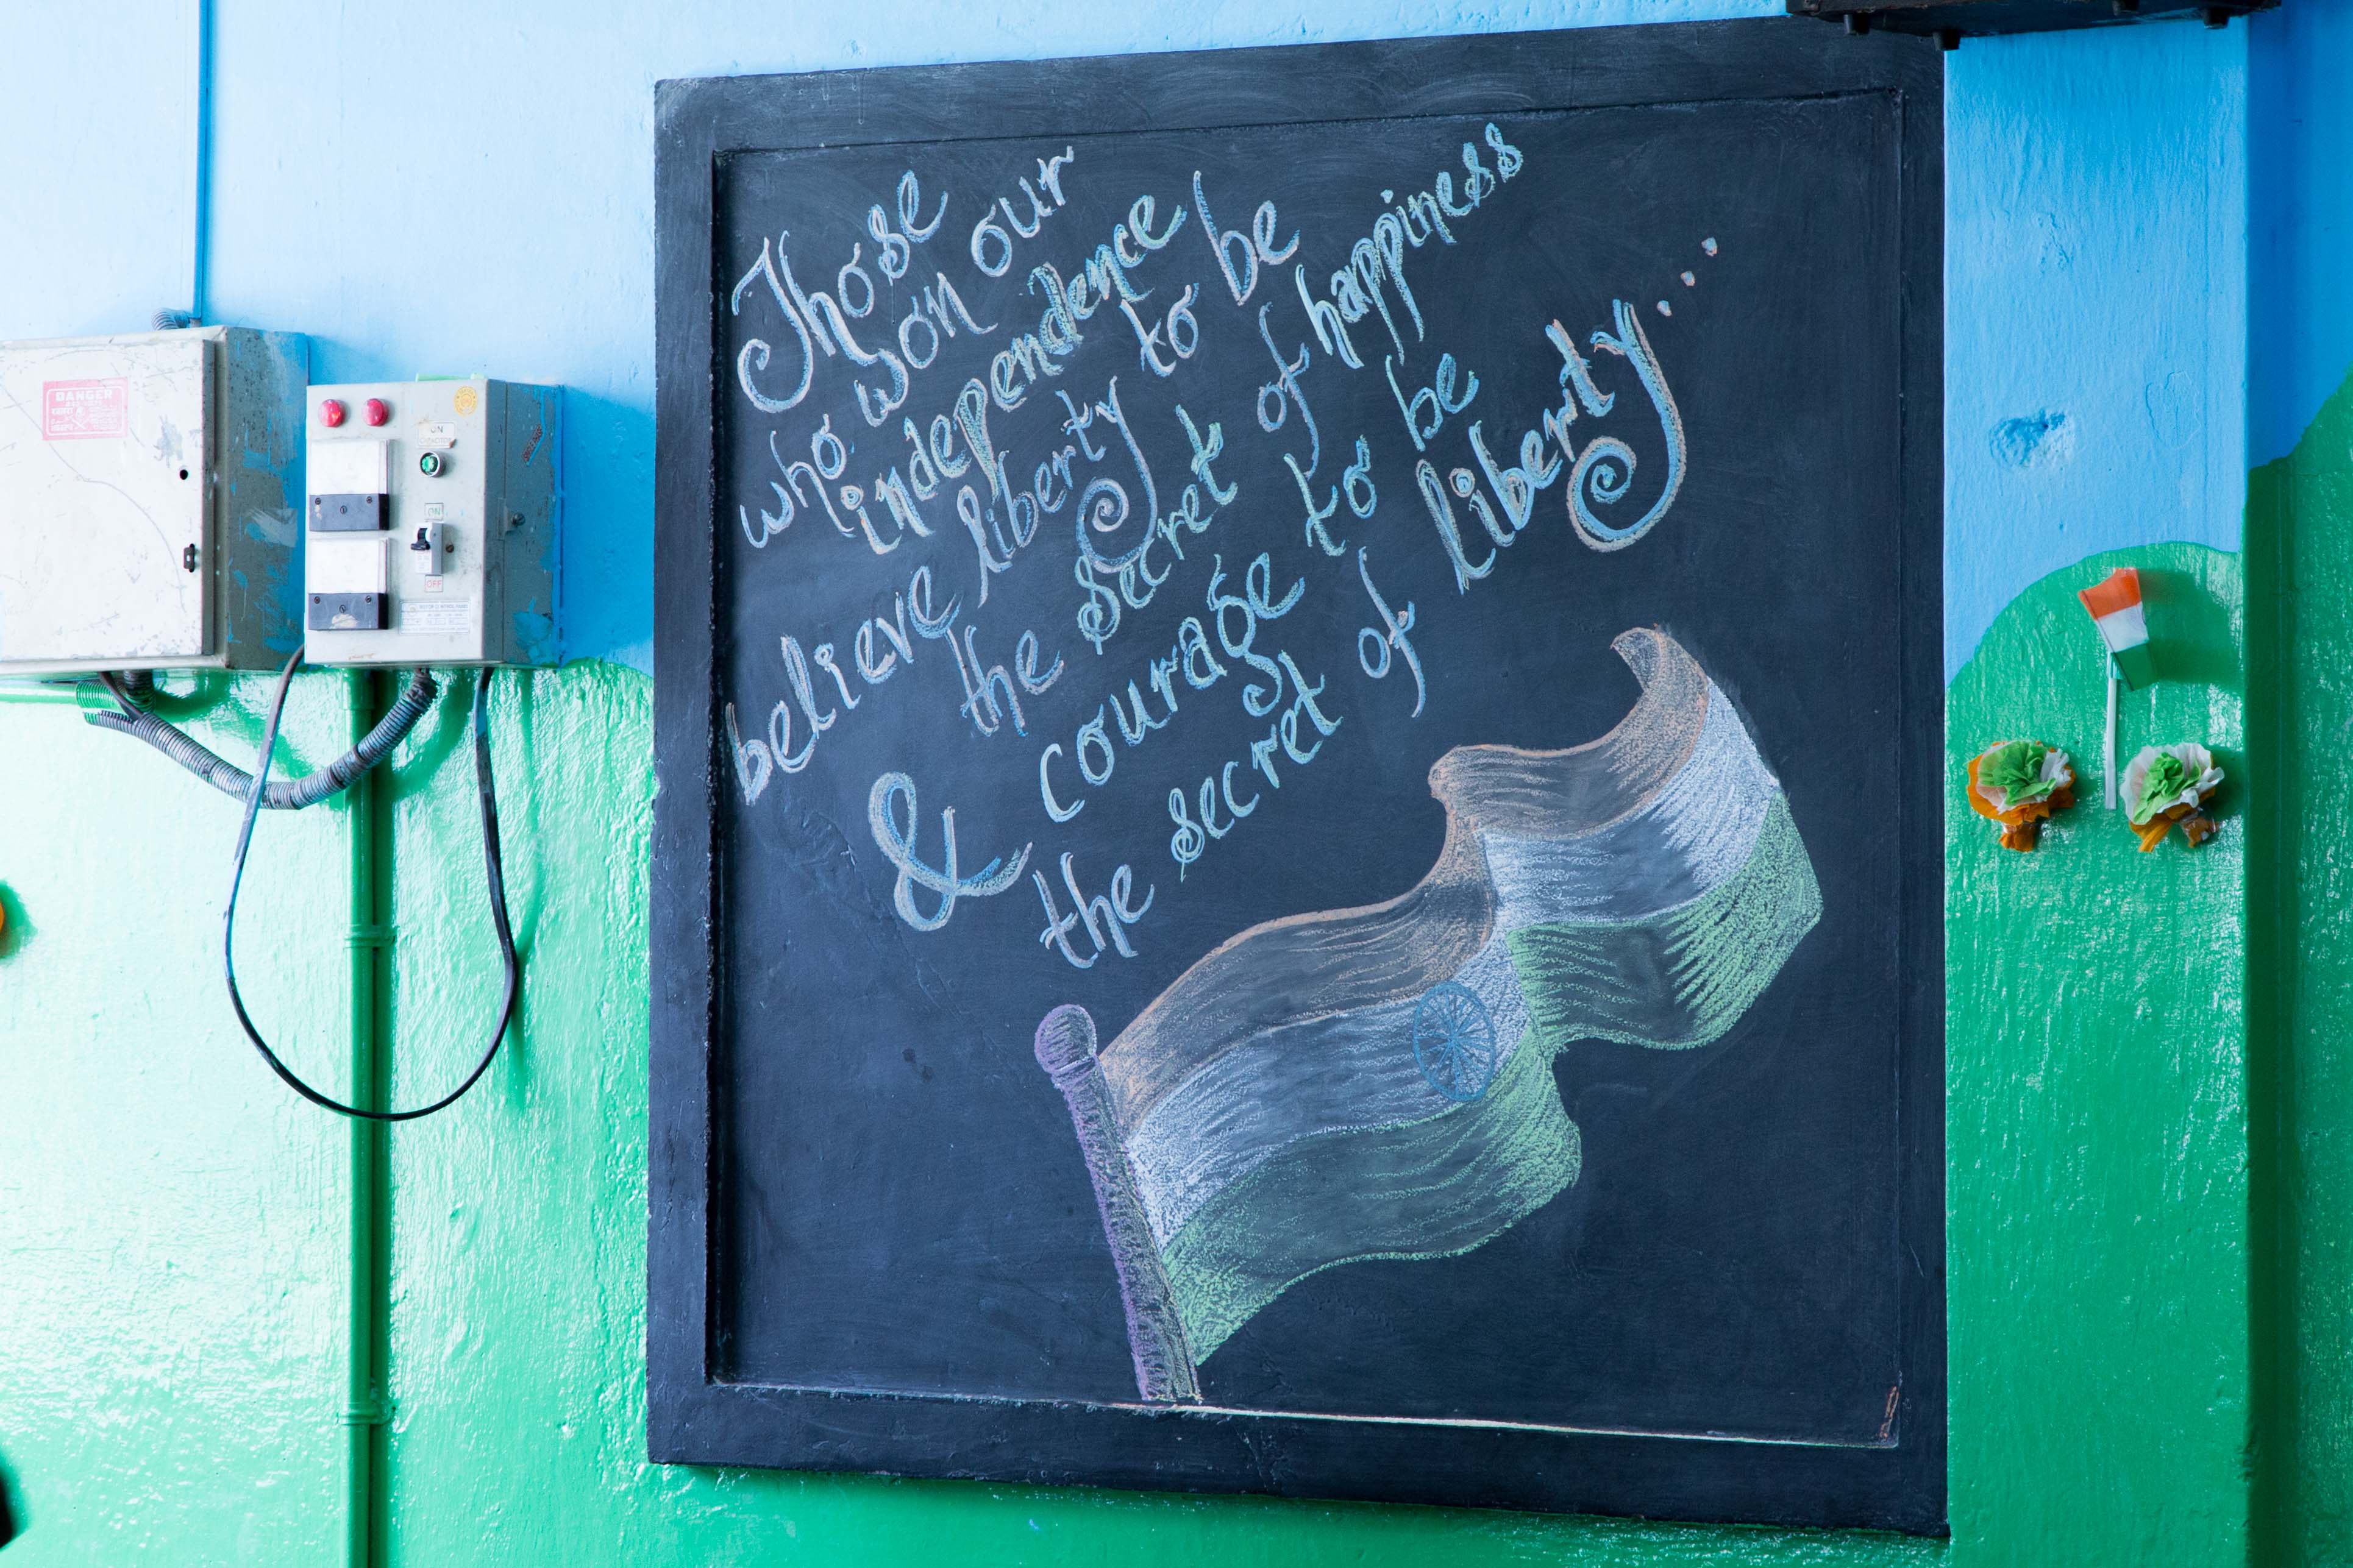 Those
who won our
independence
believe liberty to be
the secret of happiness
& courage to be
the secret of liberty...
DANGER
ON
ON
OFF